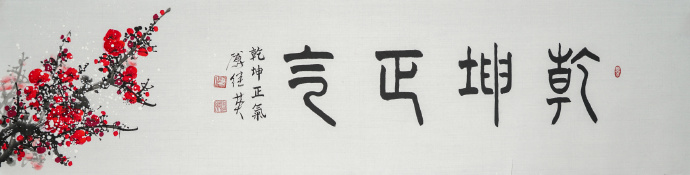 乾坤正气
乾坤正氣